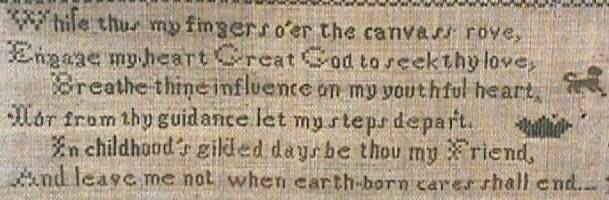 While thus my fingers o'er the canvass rove,
Engage my heart Great God to seek thy love,
Breathe thine influence on my youthful heart,
Nor from thy guidance let my steps depart.
In childhood's gilded days be thou my Friend,
And leave me not when earth-born cares shall end...